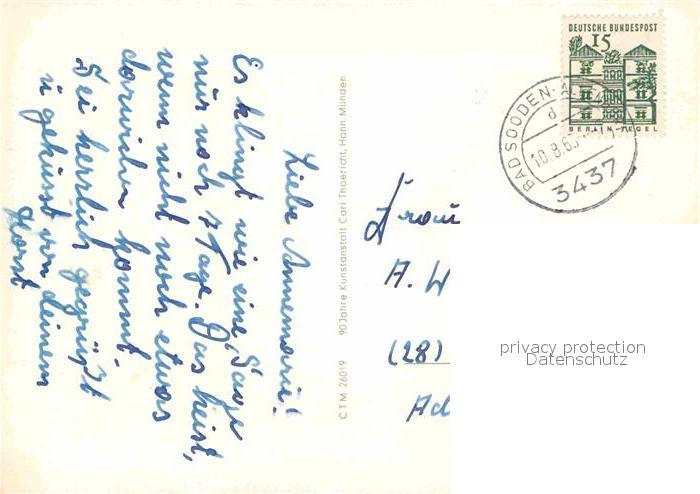 Liebe Annemarie!
Es klingt wie eine Sage
nur noch 2 Tage. Das heist,
wenn nicht noch etwas
dazwischen kommt.
Sei herrlich gegrüßt
u geküsst von deinem
Horst
90 Jahre Kunstanstalt Carl Thoericht, Hann Münden
CTM 26019
DEUTSCHE BUNDESPOST
15
BERLIN-TEGEL
BAD SOODEN-A
d
10.8.6
3437
Frau
A. W
(28)
Ad
privacy protection
Datenschutz